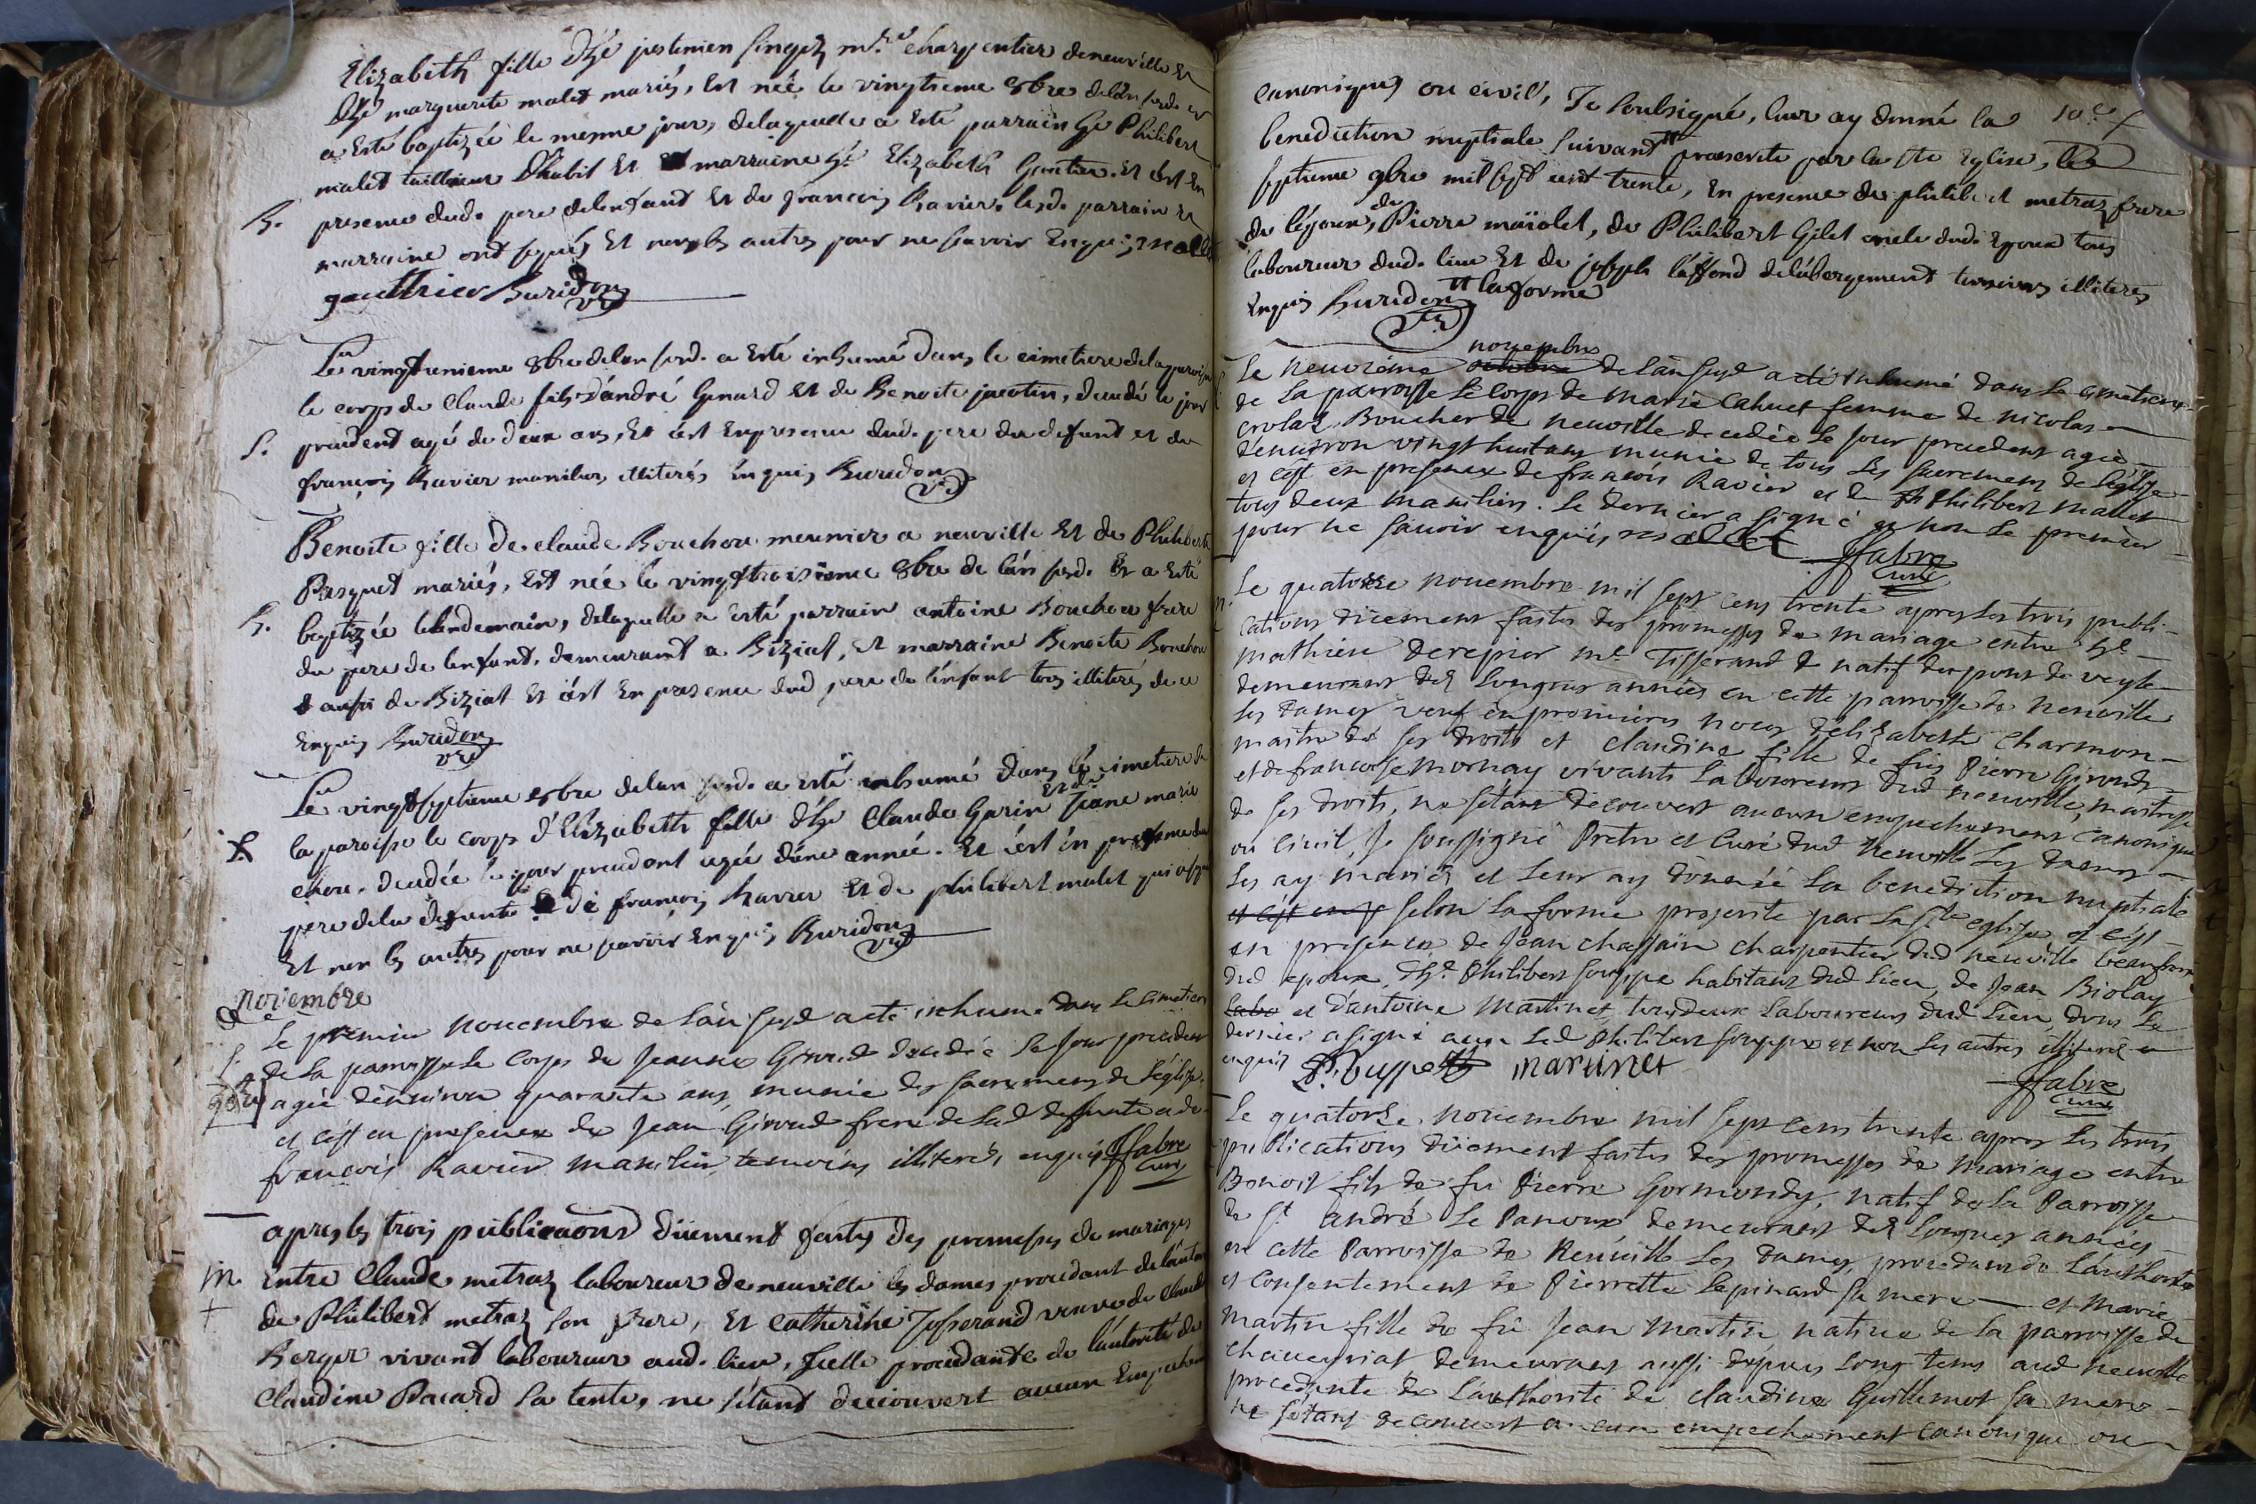 Elizabeth fille d'h.e justinien singez m.re charpentier de neuville et
d'h.e marguerite malet mariés, est née le vingtieme 8bre de l'an susd. et
a esté baptizée le mesme jour, de laquelle a esté parrain h.e Philibert
malet tailleur d'habit et marraine h.e Elizabeth Gautier. et c'est en
B. presence dud. pere de l'enfant et de françois Ravier. lesd. parrain et
marraine ont signés et non les autres pour ne savoir enquis, malet
gautthier Buridon
vre
Le vingtunieme 8bre de l'an susd. a esté inhumé dans le cimetiere de la paroisse
le corps de Claude fils d'andré Genard et de Benoite jacotin, decedé le jour
S. precedent agé de deux ans, et c'est en presence dud. pere du defunt et de
françois Ravier manilier, illiterés enquis Buridon
vre
Benoite fille de claude Bouchou meunier a neuville et de Philiberte
Pasquet mariés, est née le vingttroisieme 8bre de l'an susd. et a esté
B. baptizée le lendemain, de laquelle a esté parrain antoine Bouchou frere
du pere de l'enfant, demeurant a Biziat, et marraine Benoite Bouchou
aussi de Biziat et c'est en presence dud pere de l'enfant tous illiterés de ce
enquis Buridon
vre
Le vingtseptieme 8bre de l'an susd. a esté inhumé dans le cimetiere de
la paroisse le corps d'Elizabeth fille d'h.e Claude Garin et de Jeane marie
chou. decedée le jour precedent agée d'une année. et c'est en presence du
pere de la defunte de françois Ravier et de philibert malet qui a signé
et non les autres pour ne savoir enquis Buridon
vre
Novembre
Le premier novembre de l'an susd a eté inhumé dans le cimetiere
S. de la parroisse le corps de Jeanne Giroud decedée le jour precedent
agée d'environ quarante ans, munie des sacremens de l'église.
et c'est en presence de Jean Giroud frere de lad deffunte et de
françois Ravier manilier temoins illiterés, enquis ffabre
curé
apres les trois publicaons düement faites des promesses de mariages
m. entre Claude metraz laboureur de neuville les dames procedant de l'autorité
+ de Philibert metraz son frere, et catherine Josserand veuve de Claude
Berger vivant laboureur aud. lieu, icelle procedante de l'autorité de
Claudine Pacard sa tente, ne s'étant decouvert aucun empechement
canoniques ou civil, Je soubsigné, leur ay donné la
benediction nuptiale suivant # prescrite par la ste Eglise, le
septieme 9bre mil sept cent trente, en presence de philibert metraz frere
de l'époux, de Pierre maiolet, de Philibert Gilet oncle dud. epoux tous
laboureur dud. lieu et de joseph laffond de l'abergement temoins illiterés
enquis Buridon # la forme
vre
novembre
Le neuvieme octobre de l'an susd a eté inhumé dans le cimetiere
de la parroisse le corps de marie Cahuet femme de nicolas
crolaz Boucher de neuville decedée le jour precedent agée
d'environ vingt huit ans munie de tous les sacremens de l'église
et c'est en presence de françois Ravier et de Philibert mallet
tous deux maniliers. le dernier a signé et non le premier
pour ne savoir enquis, malet ffabre
curé
m. Le quatorze novembre mil sept cens trente apres les trois publi-
cations düement faites des promesses de mariage entre h.e
mathieu derepier m.e Tisserand natif du pont de veyle
demeurant dez longues années en cette parroisse de neuville
les dames veuf en premieres noces d'elizabeth charmon
maitre de ses droits et claudine fille de fû Pierre Giroud
et de francoise mornay vivants laboureurs dud neuville, maitresse
de ses droits, ne s'étant decouvert aucun empechement canonique
ou civil, Je soussigné Pretre et Curé dud neuville les dames
les ay mariés et leur ay donné la benediction nuptiale
et c'est en p selon la forme prescrite par la s.te eglise et c'est
en presence de Jean chassain charpentier dud neuville beaufrere
dud epoux, d'h.e Philibert souppe habitant dud lieu, de Jean Biolay
labo et d'antoine Martinet tous deux laboureurs dud lieu, dont le
dernier a signé avec led Philibert souppe et non les autres illiterés
enquis P. Suppe martinet ffabre
curé
Le quatorze novembre mil sept cens trente apres les trois
publications düement faites des promesses de mariage entre
Benoit fils de fû Pierre Gormondy, natif de la Parroisse
de S.t andré le Panoux demeurant dez longues années
en cette Parroisse de Neuville les dames, procedant de l'authorité
et consentement de Pierrette lepinard sa mere — et marie
martin fille de fû Jean martin native de la parroisse de
chaveyriat demeurant aussi depuis long tems aud neuville
procedante de l'authorité de claudine Guillemot sa mere
ne s'étant decouvert aucun empechement canonique ou